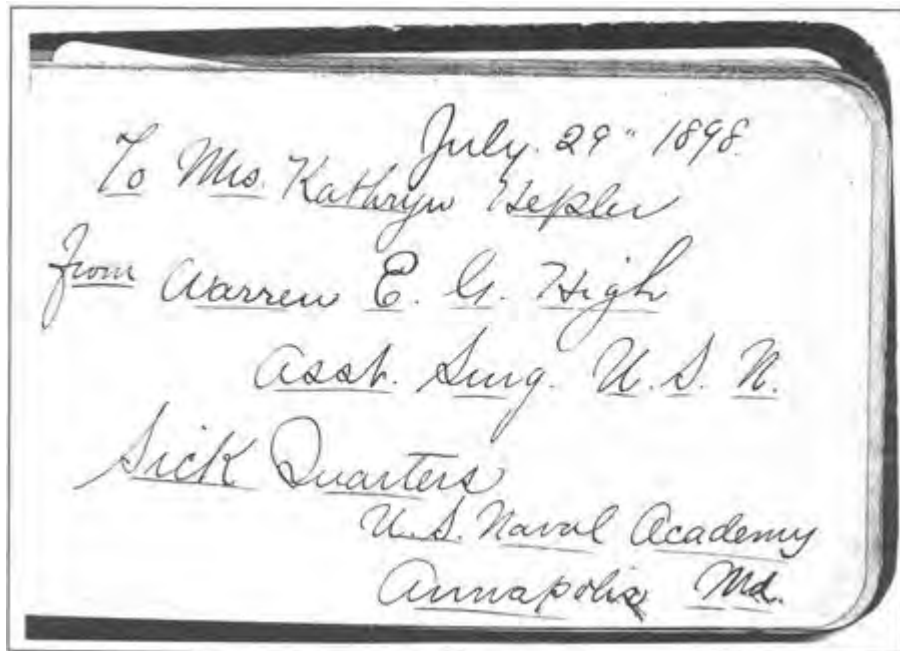 July. 29" 1898.
To Mrs. Kathryn Hepler
from Warren E. G. High
Asst. Surg. U. S. N.
Sick Quarters
U. S. Naval Academy
Annapolis Md.